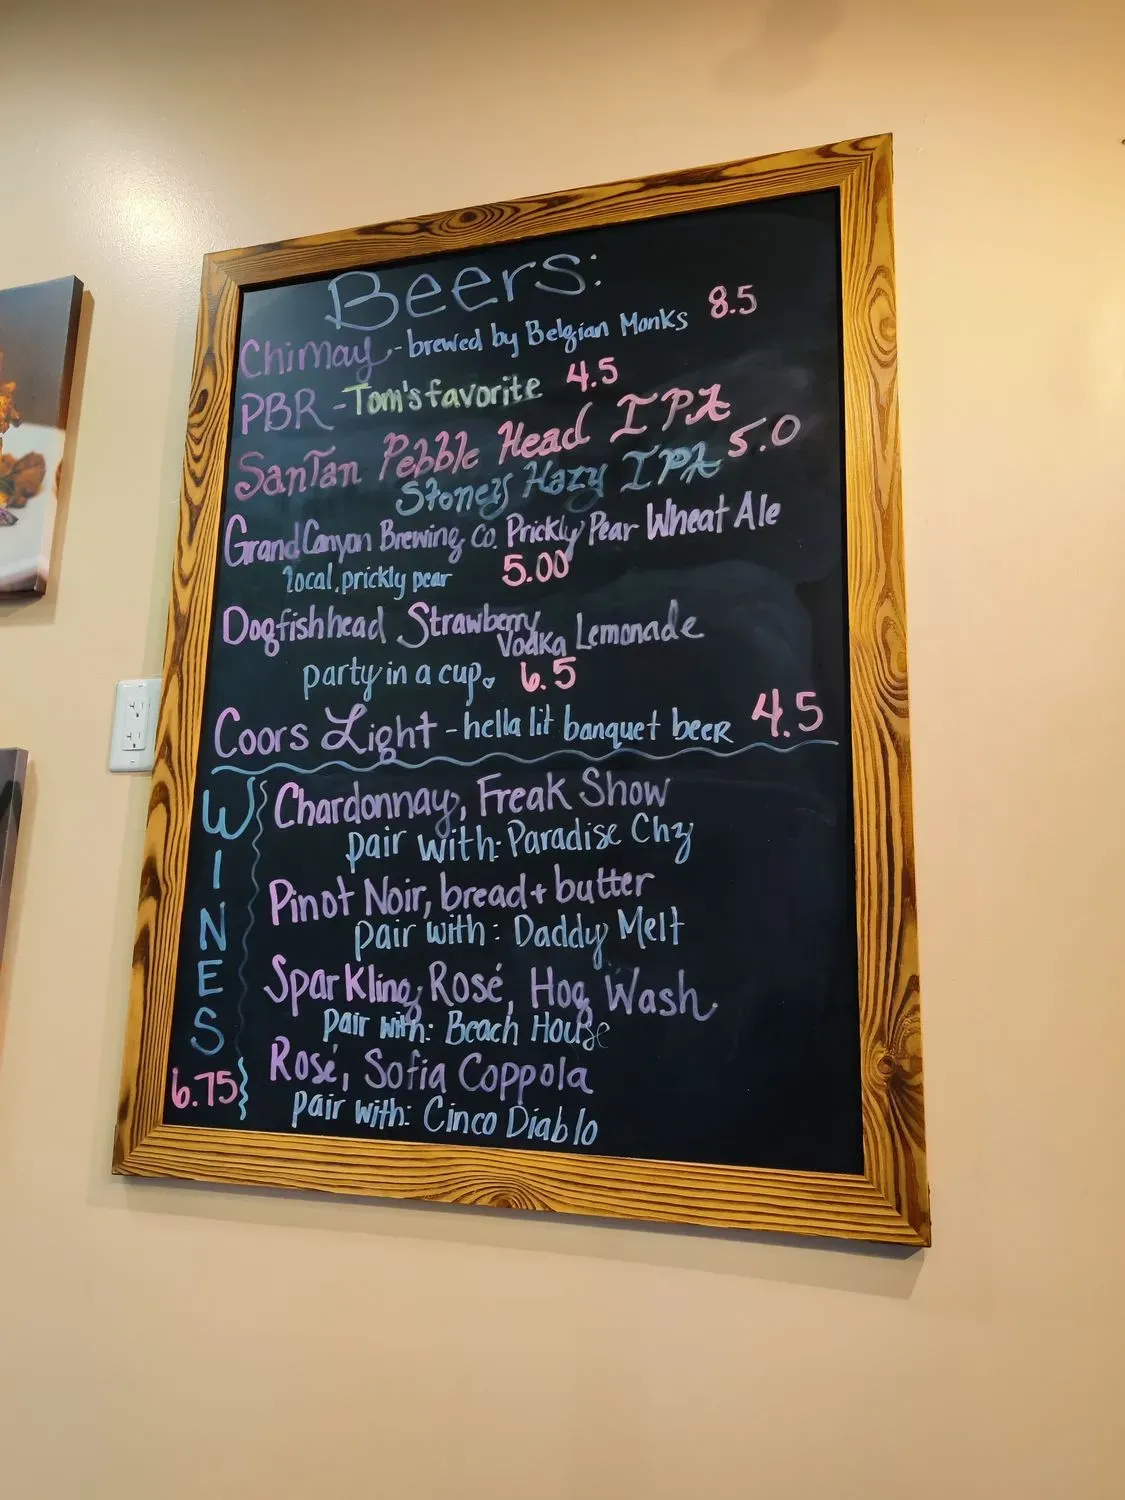 Beers:
Chimay - brewed by Belgian Monks 8.5
PBR - Tom's favorite 4.5
SanTan Pebble Head IPA 5.0
Stoners Hazy IPA
Grand Canyon Brewing Co. Prickly Pear Wheat Ale
local, prickly pear 5.00
Dogfishhead Strawberry Vodka Lemonade
party in a cup. 6.5
Coors Light - hella lit banquet beer 4.5
WINES
6.75
Chardonnay, Freak Show
pair with: Paradise Chz
Pinot Noir, bread + butter
pair with: Daddy Melt
Sparkling Rosé, Hog Wash
pair with: Beach House
Rosé, Sofia Coppola
pair with: Cinco Diablo